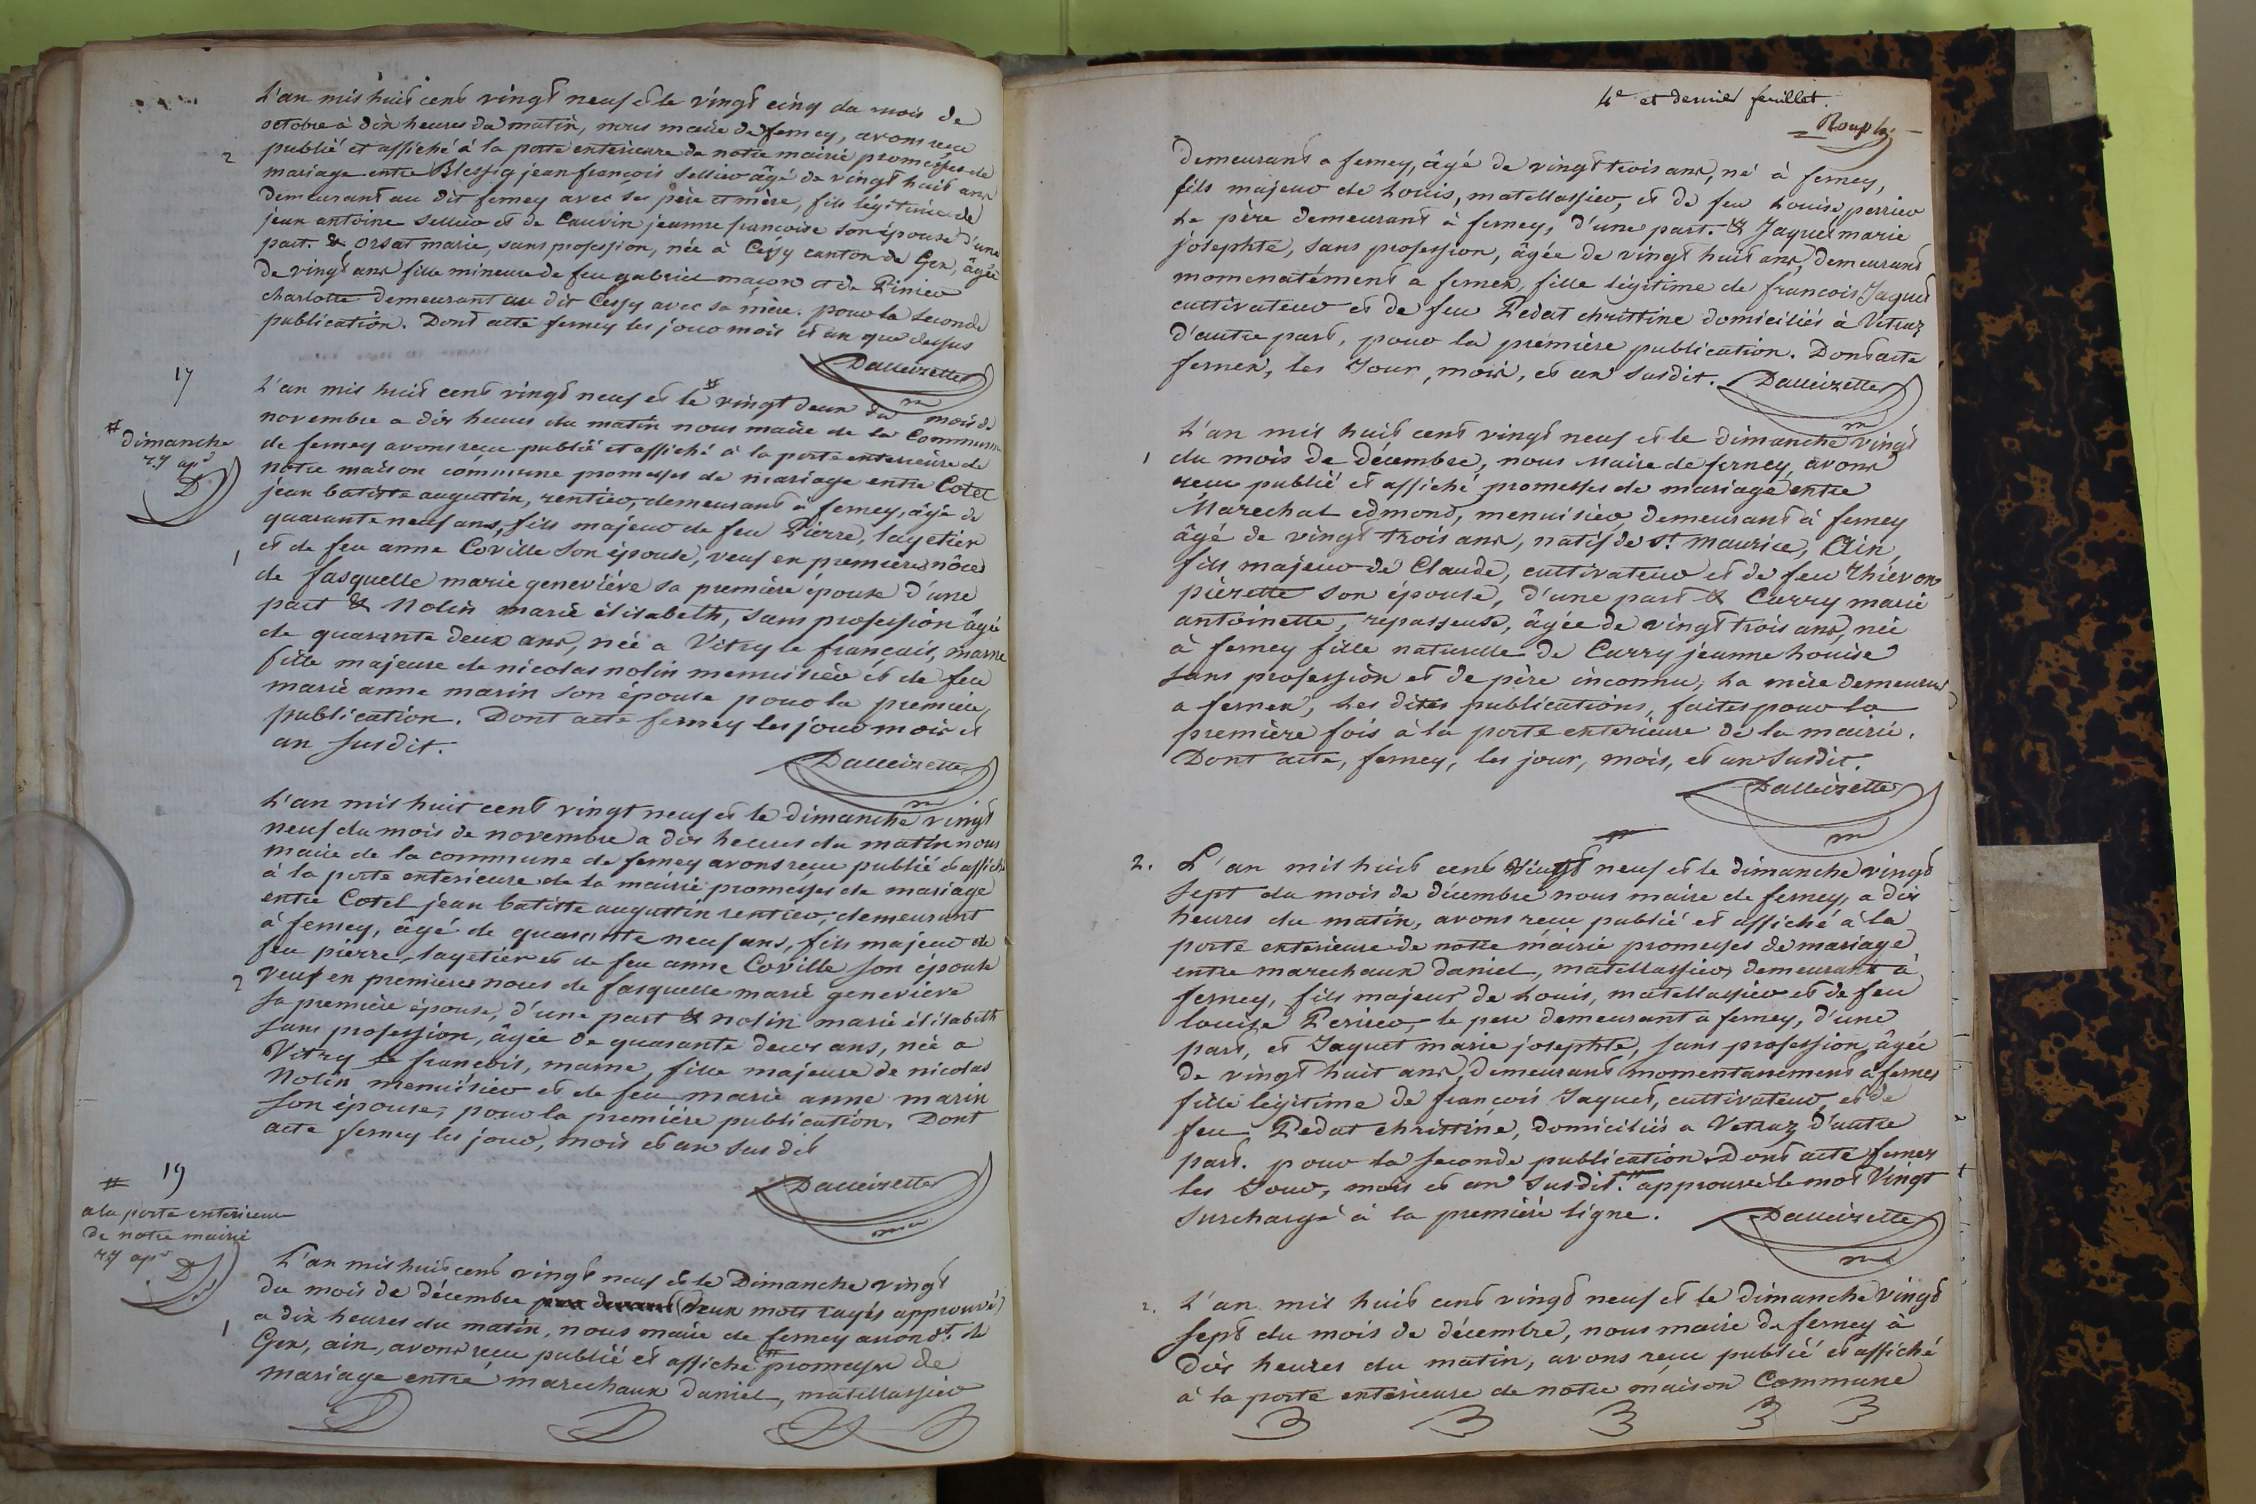 L'an mil huit cent vingt neuf et le vingt cinq du mois de
octobre à dix heures du matin, nous maire de ferney, avons reçu
publié et affiché à la porte exterieure de notre mairie promesses de
2
mariage entre Blessig jean françois sellier âgé de vingt huit ans
demeurant au dit ferney avec ses père et mère, fils légitime de
jean antoine sellier et de Cauvin jeanne françoise son épouse d'une
part. & Orsat marie, sans profession, née à Cessy canton de Gex, âgée
de vingt ans fille mineure de feu gabriel maçon et de Pinier
charlotte demeurant au dit Cessy avec sa mère. pour la seconde
publication. Dont acte ferney les jour mois et an que dessus
Dalleizette
m
17
L'an mil huit cent vingt neuf et le # vingt deux du mois de
novembre a dix heures du matin nous maire de la Commune
# dimanche
de ferney avons reçu publié et affiché à la porte exterieure de
r.y apé
D
notre maison commune promesses de mariage entre Cotel
jean batiste augustin, rentier, demeurant à ferney, âgé de
quarante neuf ans, fils majeur de feu Pierre, layetier
et de feu anne Coville son épouse, veuf en premières nôces
1
de fasquelle marie geneviéve sa première épouse d'une
part & Nolin marie élisabeth, sans profession âgée
de quarante deux ans, née a Vitry le français, marne
fille majeure de nicolas nolin menuisier et de feu
marie anne marin son épouse pour la premiere
publication. Dont acte ferney les jour mois et
an susdit.
Dalleizette
m
L'an mil huit cent vingt neuf et le dimanche vingt
neuf du mois de novembre a dix heures du matin nous
maire de la commune de ferney avons reçu publié et affiché
à la porte exterieure de la mairie promesses de mariage
entre Cotel jean batiste augustin rentier, demeurant
à ferney, âgé de quarante neuf ans, fils majeur de
feu pierre, layetier et de feu anne Coville son épouse
2
veuf en premieres noces de fasquelle marie genevieve
sa première épouse, d'une part & nolin marie élisabeth
sans profession, âgée de quarante deux ans, née a
Vitry le françois, marne, fille majeure de nicolas
Nolin menuisier et de feu marie anne marin
son épouse, pour la première publication. Dont
acte ferney les jour, mois et an susdit
Dalleizette
19
#
a la porte exterieure
de notre mairie
r.y apé
D
L'an mil huit cent vingt neuf et le Dimanche vingt
du mois de décembre (deux mots rayés approuvé)
a dix heures du matin, nous maire de ferney arrondt. de
1
Gex, ain, avons reçu publié et affiché # promesse de
mariage entre marechaux daniel, matellassier
4e et dernier feuillet.
demeurant a ferney, âgé de vingt trois ans, né à ferney,
fils majeur de Louis, matellassier, et de feu Louise perrier
Le père demeurant à ferney, d'une part. & Jaquet marie
josephte, sans profession, âgée de vingt huit ans, demeurant
momenatément a fernex, fille légitime de françois Jaquet
cultivateur et de feu Pedat christine domiciliés à Vetraz
d'autre part, pour la première publication. Dont acte
fernex, les Jour, mois, et an susdit.
Dalleizette
m
L'an mil huit cent vingt neuf et le dimanche vingt
1
du mois de décembre, nous Maire de ferney, avons
reçu publié et affiché promesses de mariage entre
Marechal edmond, menuisier, demeurant à ferney
âgé de vingt trois ans, natif de st. maurice, Ain,
fils majeur de Claude, cultivateur et de feu Thievon
pierette son épouse, d'une part & Carry marie
antoinette, repasseuse, âgée de vingt trois ans, née
à ferney fille naturelle de Carry jeanne Louise
sans profession et de père inconnu, La mère demeurant
a fernex, Les dites publications, faites pour la
première fois à la porte exterieure de la mairie.
Dont acte, ferney, les jour, mois, et an susdit.
Dalleizette
m
2.
L'an mil huit cent Vingt neuf et le dimanche vingt
sept du mois de décembre nous maire de ferney, a dix
heures du matin, avons reçu publié et affiché à la
porte exterieure de notre mairie promesses de mariage
entre marechaux daniel, matellassier, demeurant à
ferney, fils majeur de Louis, matellassier et de feu
Louise Perrier, le pere demeurant a ferney, d'une
part, et Jaquet marie josephte, sans profession, âgée
de vingt huit ans, demeurant momentanement a fernex
fille légitime de françois Jaquet, cultivateur, et de
feu Pedat christine, domiciliés a Vetraz d'autre
part. pour la seconde publication. Dont acte fernex
les Jour, mois et an susdit. approuvé le mot Vingt
surchargé à la première ligne.
Dalleizette
m
2.
L'an mil huit cent vingt neuf et le dimanche vingt
sept du mois de décembre, nous maire de ferney à
dix heures du matin, avons reçu publié et affiché
à la porte exterieure de notre maison Commune